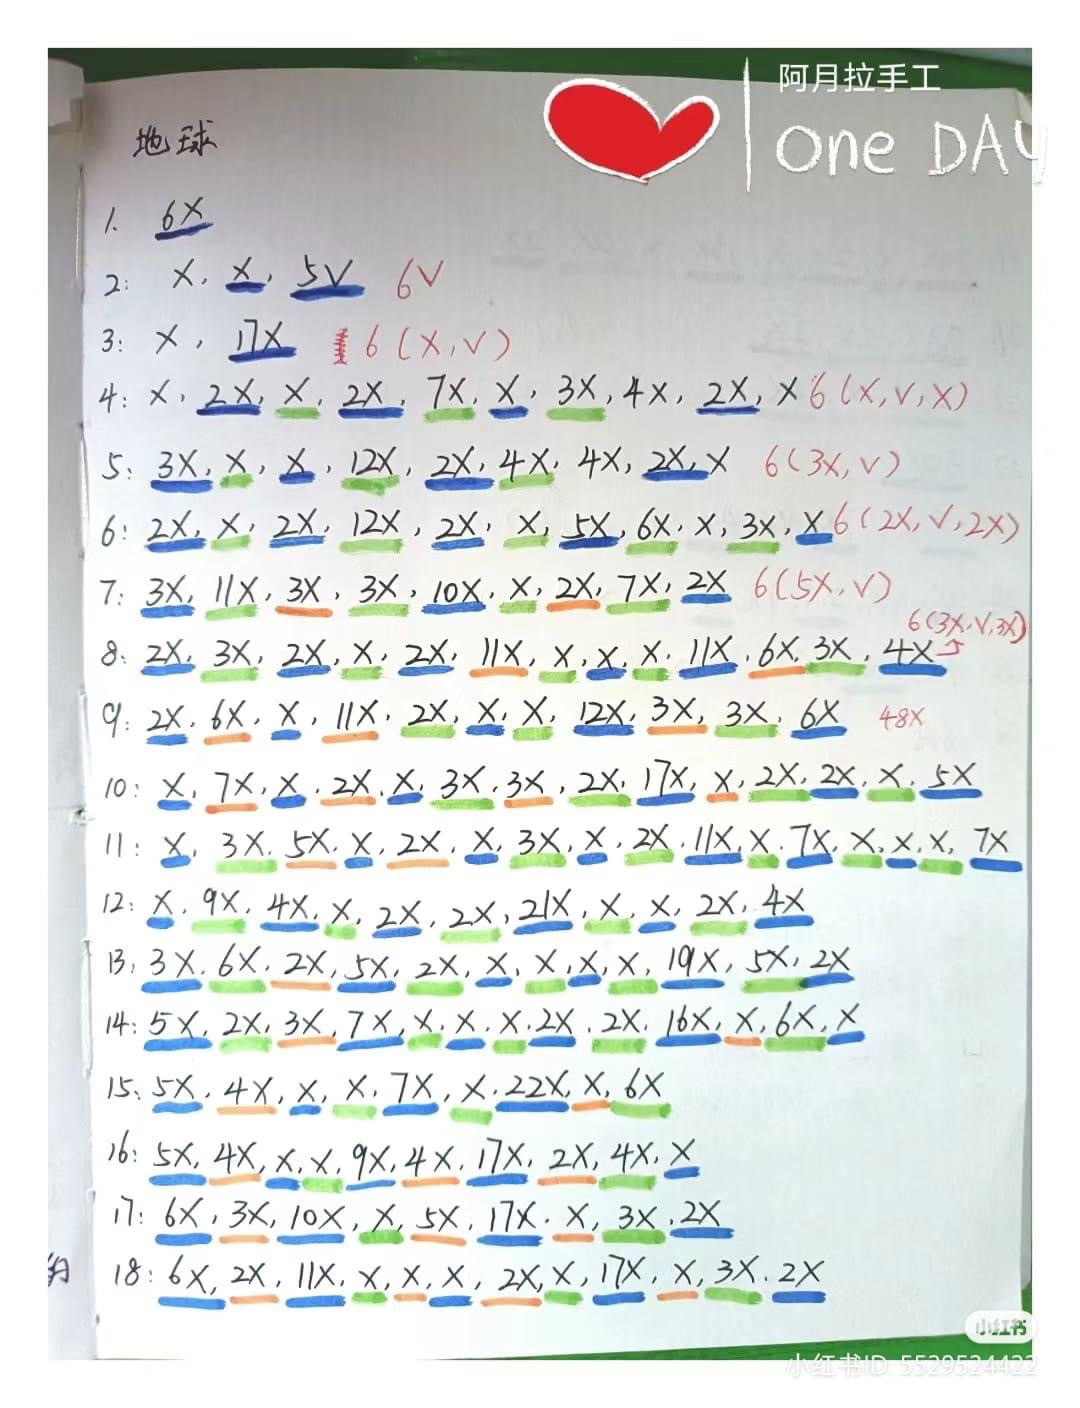 阿月拉手工
one DAY
地球
1. 6X
2: X, X, 5V 6V
3: X, 17X 6(X,V)
4: X, 2X, X, 2X, 7X, X, 3X, 4X, 2X, X 6(X,V,X)
5: 3X, X, X, 12X, 2X, 4X, 4X, 2X, X 6(3X,V)
6: 2X, X, 2X, 12X, 2X, X, 5X, 6X, X, 3X, X 6(2X,V,2X)
7: 3X, 11X, 3X, 3X, 10X, X, 2X, 7X, 2X 6(5X,V)
6(3X,V,3X)
8: 2X, 3X, 2X, X, 2X, 11X, X, X, X, 11X, 6X, 3X, 4X
9: 2X, 6X, X, 11X, 2X, X, X, 12X, 3X, 3X, 6X 48X
10: X, 7X, X, 2X, X, 3X, 3X, 2X, 17X, X, 2X, 2X, X, 5X
11: X, 3X, 5X, X, 2X, X, 3X, X, 2X, 11X, X, 7X, X, X, X, 7X
12: X, 9X, 4X, X, 2X, 2X, 21X, X, X, 2X, 4X
13, 3X, 6X, 2X, 5X, 2X, X, X, X, X, 19X, 5X, 2X
14: 5X, 2X, 3X, 7X, X, X, X, 2X, 2X, 16X, X, 6X, X
15, 5X, 4X, X, X, 7X, X, 22X, X, 6X
16: 5X, 4X, X, X, 9X, 4X, 17X, 2X, 4X, X
17: 6X, 3X, 10X, X, 5X, 17X, X, 3X, 2X
18: 6X, 2X, 11X, X, X, X, 2X, X, 17X, X, 3X, 2X
小红书
小红书ID: 5529524422